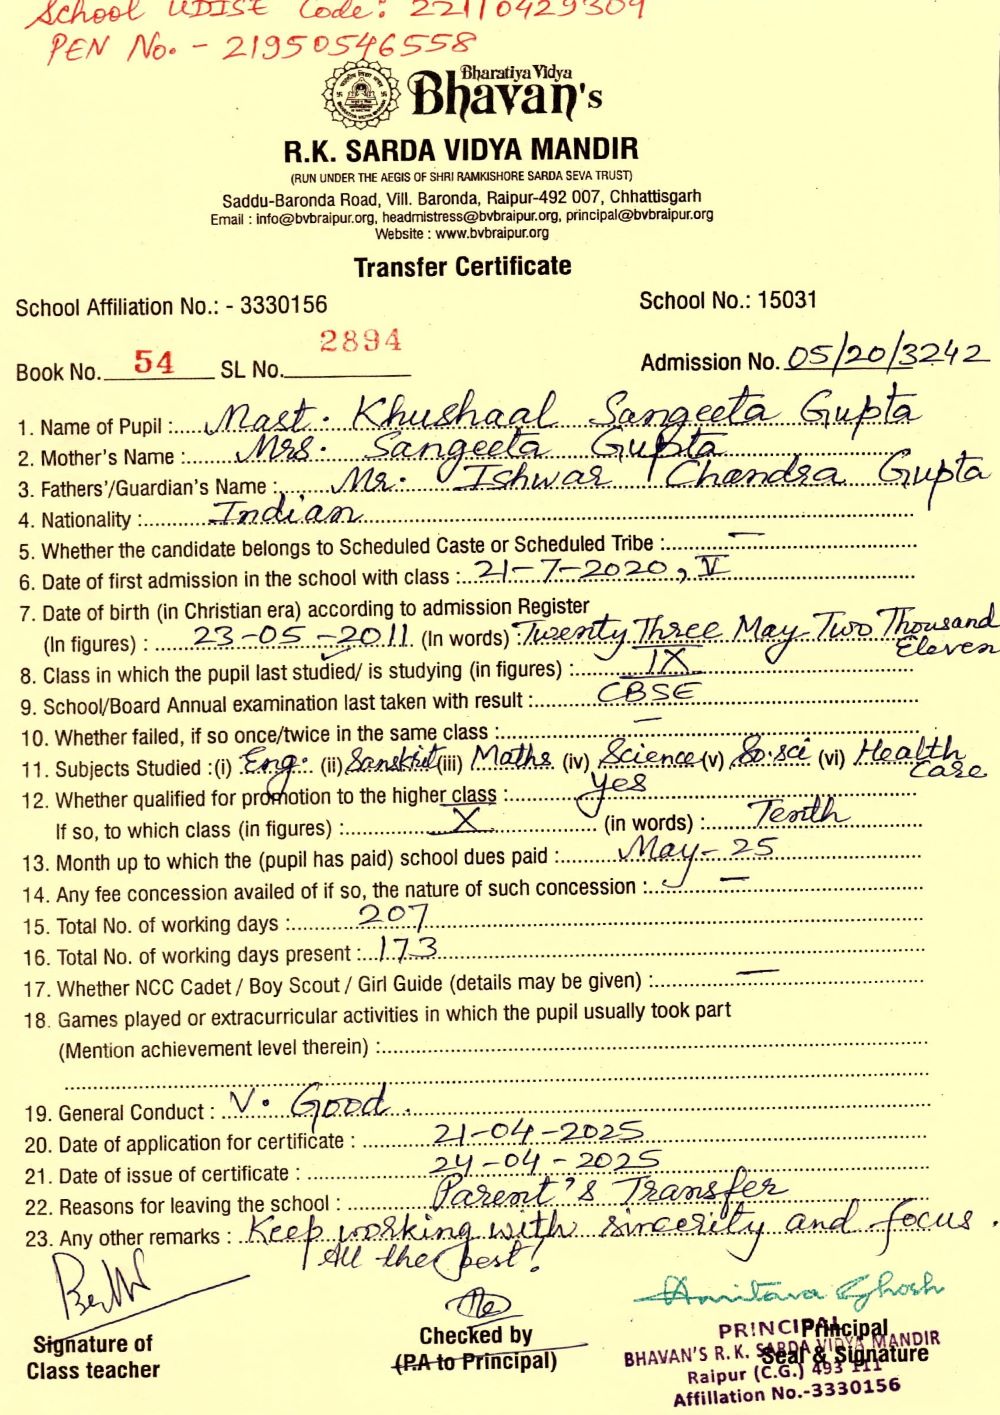 School UDISE Code: 22110429309
PEN No. - 21950546558
Bharatiya Vidya
Bhavan's
R.K. SARDA VIDYA MANDIR
(RUN UNDER THE AEGIS OF SHRI RAMKISHORE SARDA SEVA TRUST)
Saddu-Baronda Road, Vill. Baronda, Raipur-492 007, Chhattisgarh
Email : info@bvbraipur.org, headmistress@bvbraipur.org, principal@bvbraipur.org
Website : www.bvbraipur.org
Transfer Certificate
School Affiliation No.: - 3330156 School No.: 15031
Book No. 54 SL No. 2894 Admission No. 05/20/3242
1. Name of Pupil : Mast. Khushaal Sangeeta Gupta
2. Mother's Name : Mrs. Sangeeta Gupta
3. Fathers'/Guardian's Name : Mr. Ishwar Chandra Gupta
4. Nationality : Indian
5. Whether the candidate belongs to Scheduled Caste or Scheduled Tribe : —
6. Date of first admission in the school with class : 21-7-2020, V
7. Date of birth (in Christian era) according to admission Register
(In figures) : 23-05-2011 (In words) : Twenty Three May Two Thousand Eleven
8. Class in which the pupil last studied/ is studying (in figures) : IX
9. School/Board Annual examination last taken with result : CBSE
10. Whether failed, if so once/twice in the same class : —
11. Subjects Studied :(i) Eng. (ii) Sanskrit (iii) Maths (iv) Science (v) So.sci (vi) Health Care
12. Whether qualified for promotion to the higher class : yes
If so, to which class (in figures) : X (in words) : Tenth
13. Month up to which the (pupil has paid) school dues paid : May-25
14. Any fee concession availed of if so, the nature of such concession : —
15. Total No. of working days : 207
16. Total No. of working days present : 173
17. Whether NCC Cadet / Boy Scout / Girl Guide (details may be given) : —
18. Games played or extracurricular activities in which the pupil usually took part
(Mention achievement level therein) :
19. General Conduct : V. Good.
20. Date of application for certificate : 21-04-2025
21. Date of issue of certificate : 24-04-2025
22. Reasons for leaving the school : Parent's Transfer
23. Any other remarks : Keep working with sincerity and focus.
All the best!
Amitava Ghosh
Signature of
Class teacher
Checked by
(P.A to Principal)
Principal
Seal & Signature
PRINCIPAL
BHAVAN'S R.K. SARDA VIDYA MANDIR
Raipur (C.G.) 493 111
Affillation No.-3330156